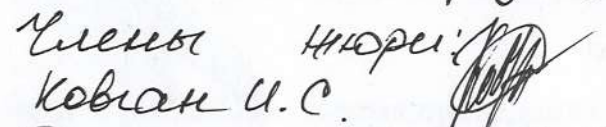 Члены жюри:
Ковган И.С.